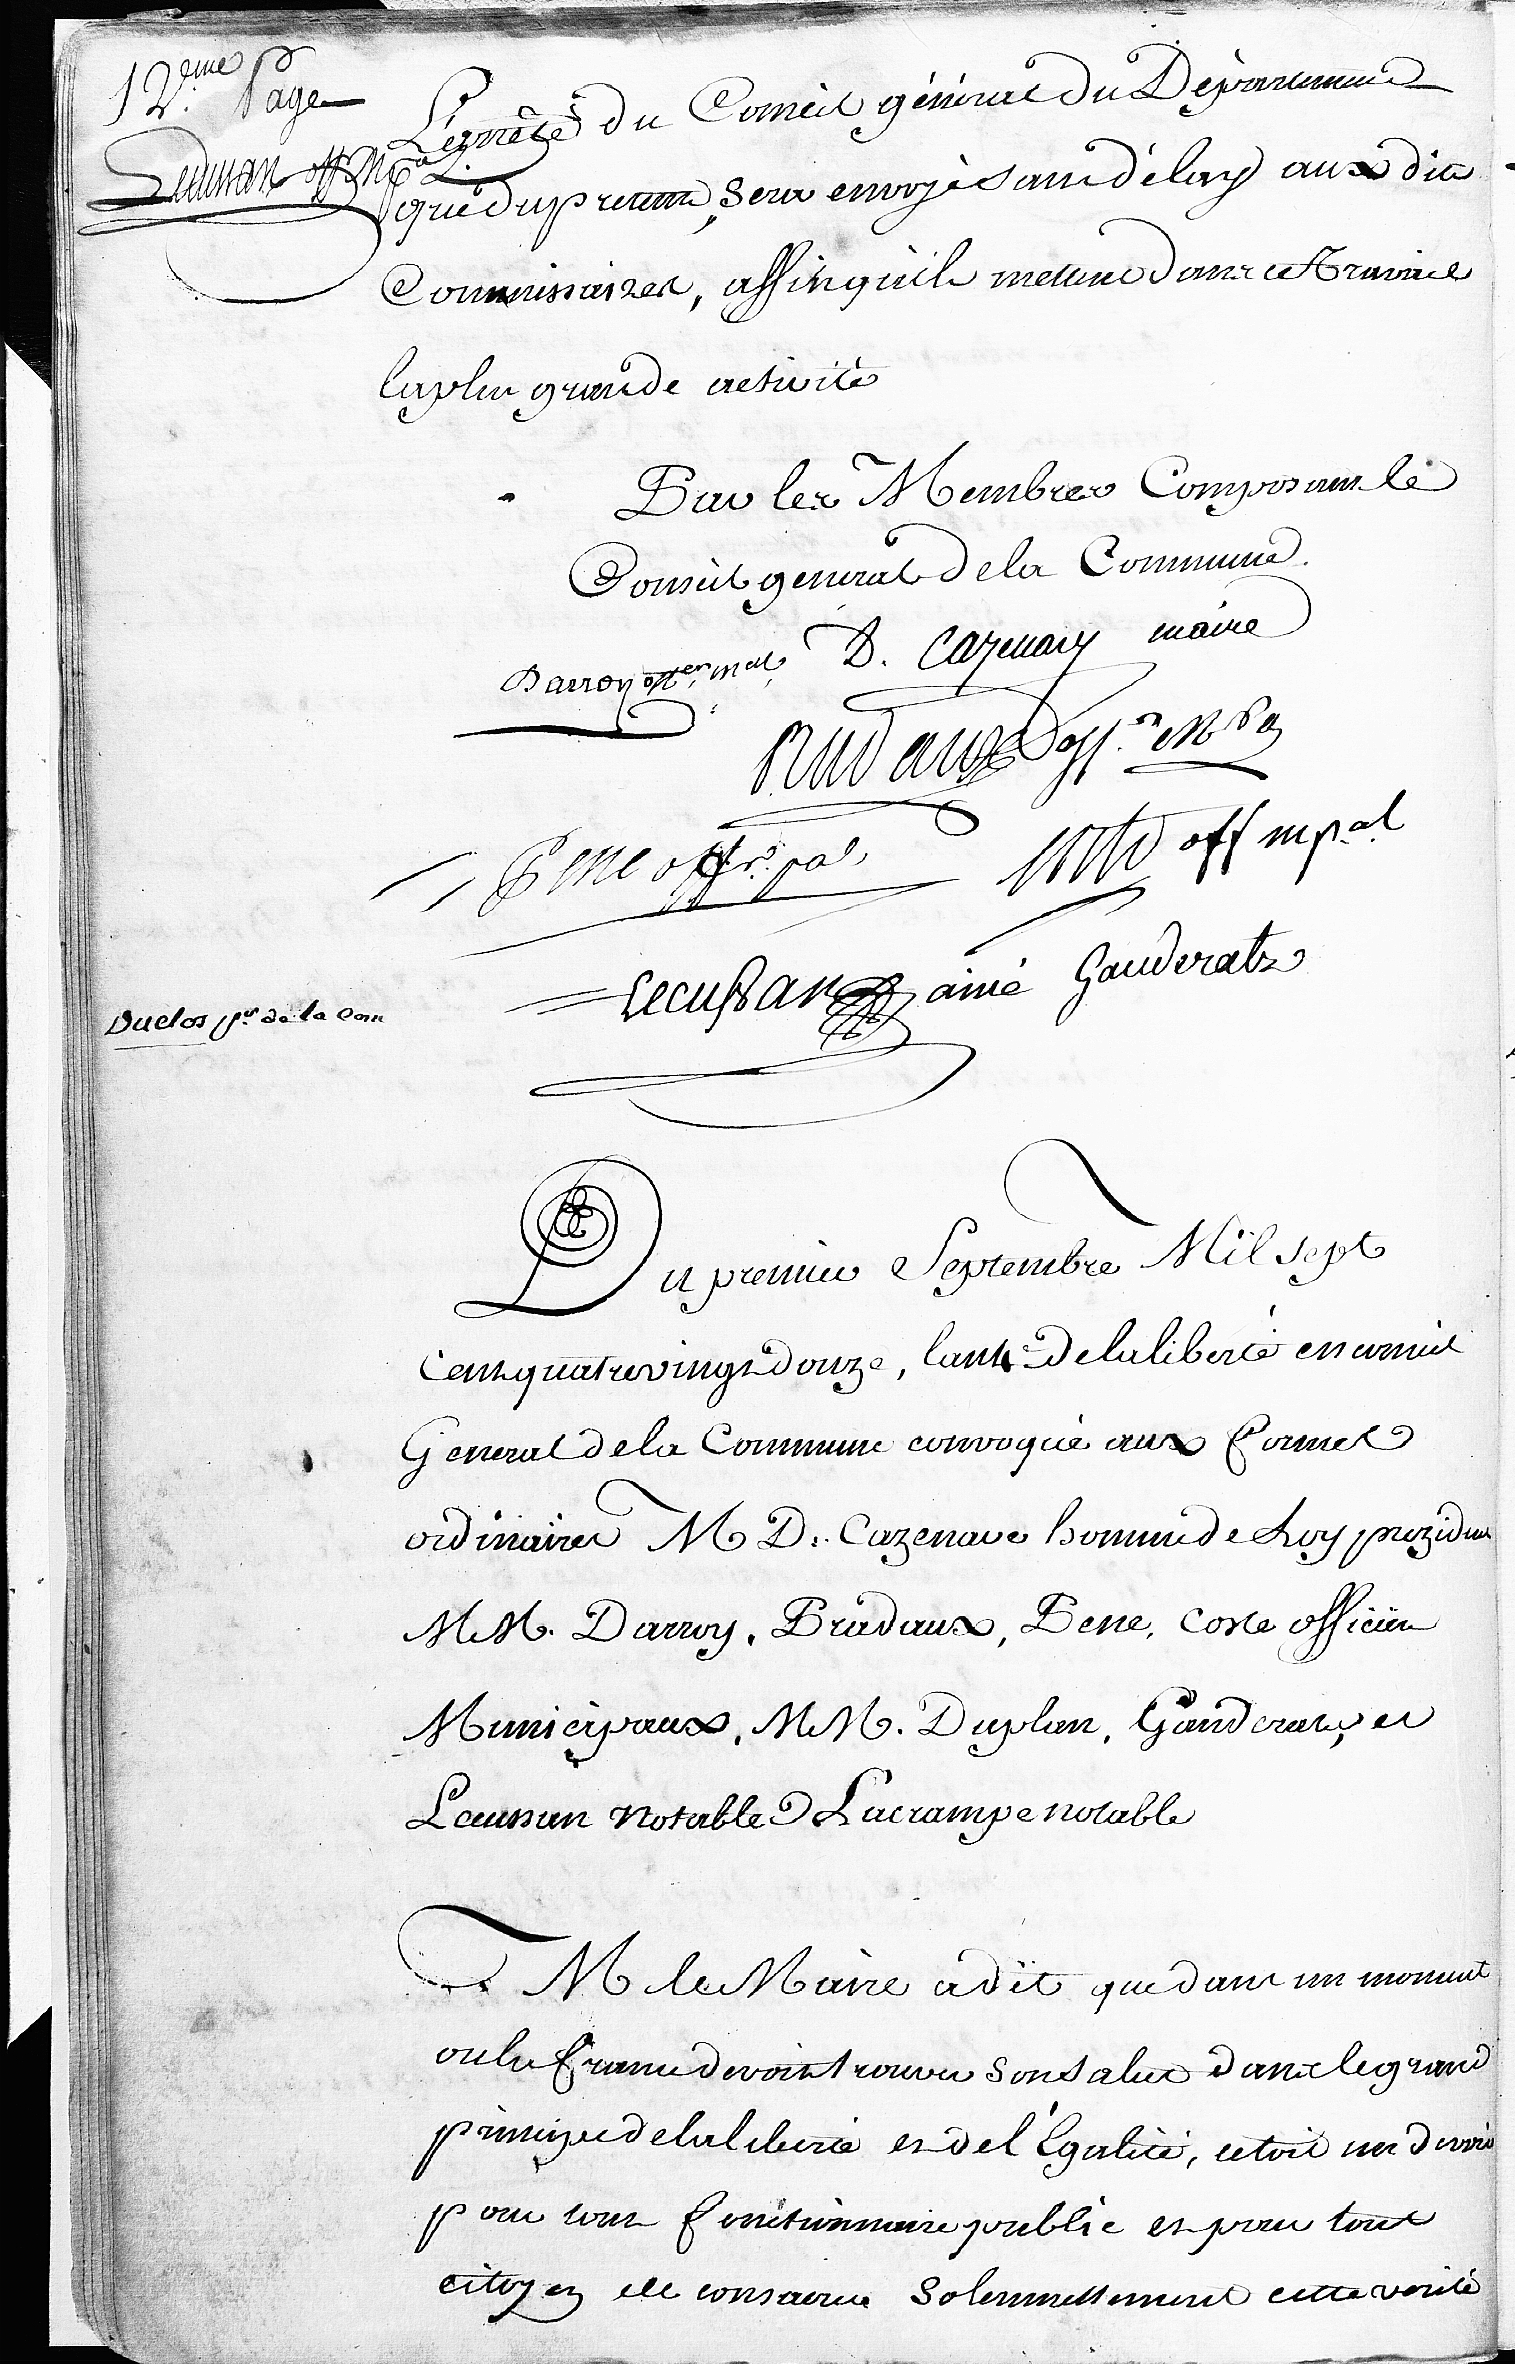 12.eme Page
Lecussan off. mpal
L'arrêté du Conseil général du Département
que du present, sera envoyé sans délay aux dits
Commissaires, affin qu'ils mettent dans ce travail
la plus grande activité
Par les Membres Composans le
Conseil general de la Commune.
Darroy offer. mal. D. Cazenave maire
Pradaux off. Mpal
Pene off. pal. Coste off mpal
Lecussan ainé Gauderats
Duclos pr. de la Com
Du premier Septembre Mil sept
cent quatre vingt douze, l'an 4e de la liberté en conseil
General de la Commune convoqué aux formes
ordinaires M D. Cazenave homme de Loy prezident
M.M. Darroy, Pradaux, Pene, Coste officiers
Municipaux, M.M. Duplan, Gauderats, et
Lecussan notables Lacrampe notable
M le Maire a dit que dans un moment
ou la france devoit trouver son salut dans le grand
principe de la liberté et de l'Egalité, cetoit un devoir
pour tout fonctionnaire public et pour tout
citoyen de consacrer solennellement cette verité